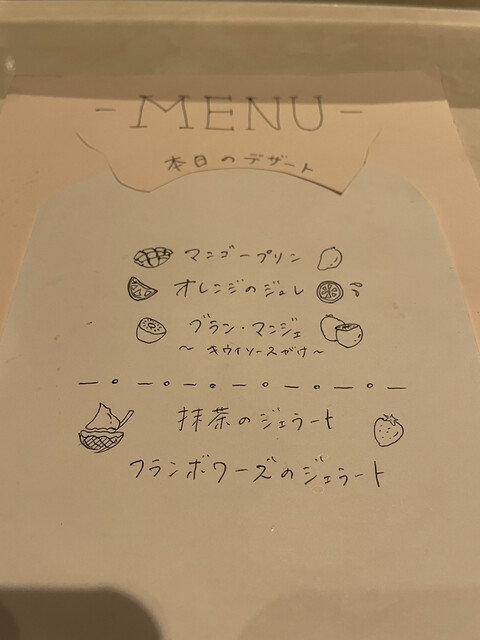 - MENU -
本日のデザート
マンゴープリン
オレンジのジュレ
ブラン・マンジェ
～ キウイソースがけ ～
抹茶のジェラート
フランボワーズのジェラート